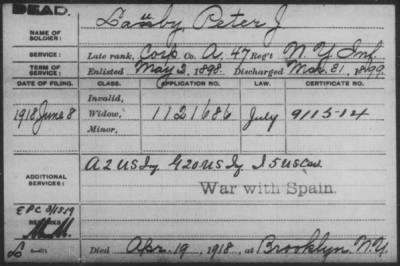 DEAD.
NAME OF SOLDIER: Peter J
SERVICE: Late rank, Corp Co. A, 47 Reg't N.Y. Inf.
TERM OF SERVICE: Enlisted May 2, 1898. Discharged Mar. 31, 1899.
DATE OF FILING. CLASS. APPLICATION NO. LAW. CERTIFICATE NO.
Invalid,
1918 June 8 Widow, 1121686 July 91
Minor,
ADDITIONAL SERVICES: A 2 US Inf G 20 US Inf I 5 US Cav.
War with Spain.
Died Apr. 19, 1918, at Brooklyn. N.Y.